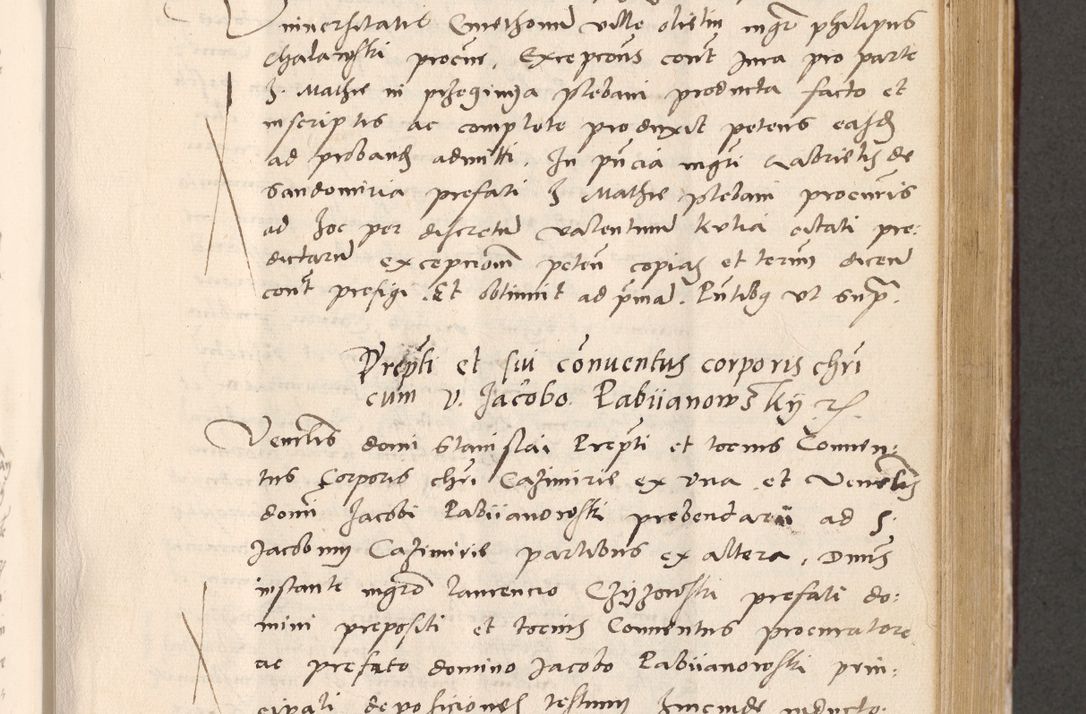 universitatis Cmethonum ville olstin mgr philipus
chalawski procur. Exceptus cont iura pro parte
S. Mathie in przeginya plebani producta facto et
inscriptis ac complete produxit petens easd
ad proband admitti. In pncia mgri Gabrielis de
Sandomiria prefati S Mathie plebani procuris
ad hoc per discretum valentinum citati pre:
dictarum exceptionum peten copias et terim dicen
cont prefigi. Et obtinuit ad pmam. Pntibq vt supr.
Prepti et sui conventus corporis chri
cum v. Jacobo Pabiianowsky
Venerlis domi Stanislai Prepti et tocius Conven:
tus Corporis chri Cazimirie ex vna et Venerlis
domi Jacobi Pabiianowski prebendarii ad S.
Jacobum Cazimirie partibus ex altera. Dnus
instante mgro laurencio Czyzowski prefati do:
mini prepositi et tocius Conventus procuratore
ac prefato domino Jacobo Pabiianowski prin:
cipali deposiciones testium hincinde inducto: